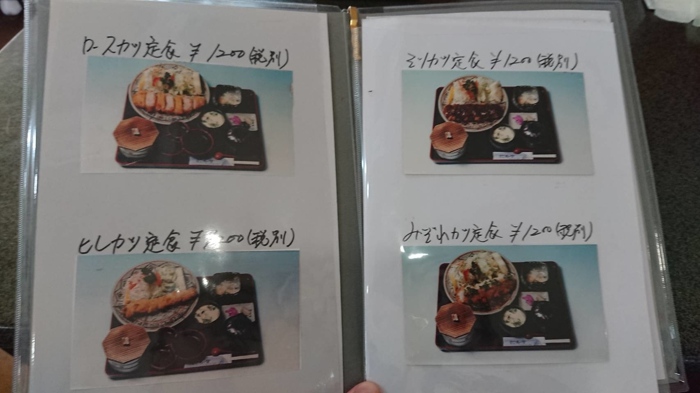 ロースカツ定食 ¥1200(税別)
ヒレカツ定食 ¥1200(税別)
ミソカツ定食 ¥1200(税別)
みぞれカツ定食 ¥1200(税別)